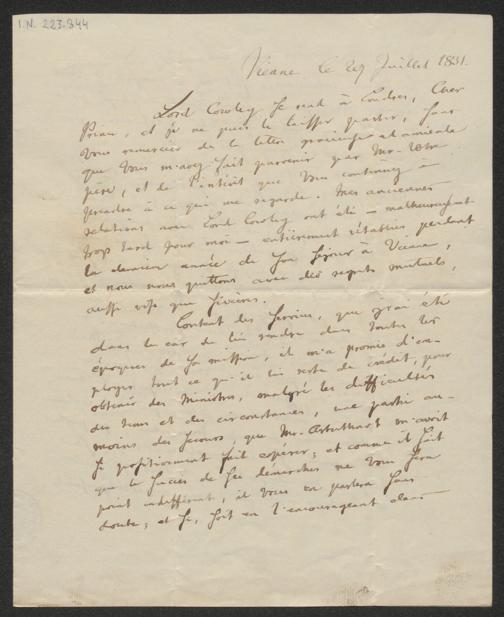 I.N. 223.844
Vienne le 29 Juillet 1831.
Lord Cowley se rend à Londres, Cher
Prince, et je ne puis le laisser partir, sans
Vous remercier de la lettre gracieuse et amicale
que Vous m'avez fait parvenir par Mr. Votre
père, et de l'intérêt que Vous continuez à
prendre à ce qui me regarde. Mes anciennes
relations avec Lord Cowley ont été — malheureusement
trop tard pour moi — entièrement rétablies pendant
la dernière année de son séjour à Vienne,
et nous nous quittons avec des regrets mutuels,
aussi vifs que sincères.
Content des services, que j'ai été
dans le cas de lui rendre dans toutes les
époques de sa mission, il m'a promis d'em-
ployer tout ce qu'il lui reste de crédit, pour
obtenir des Ministres, malgré les difficultés
des tems et des circonstances, une partie au-
moins des secours, que Mr. m'avoit
si positivement fait espérer; et comme il sait
que le succès de ses démarches ne Vous sera
point indifférent, il Vous en parlera sans
doute; et si, soit en l'encourageant dans